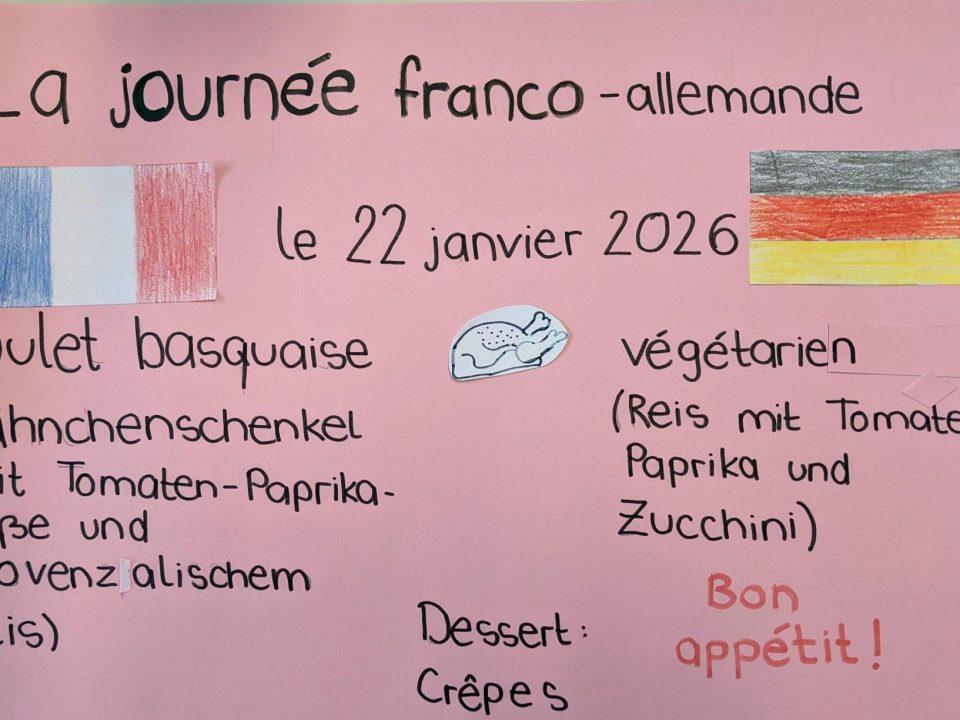 La journée franco-allemande
le 22 janvier 2026
oulet basquaise
ähnchenschenkel
it Tomaten-Paprika-
ße und
ovenzalischem
eis)
végétarien
(Reis mit Tomate
Paprika und
Zucchini)
Dessert:
Crêpes
Bon
appétit!